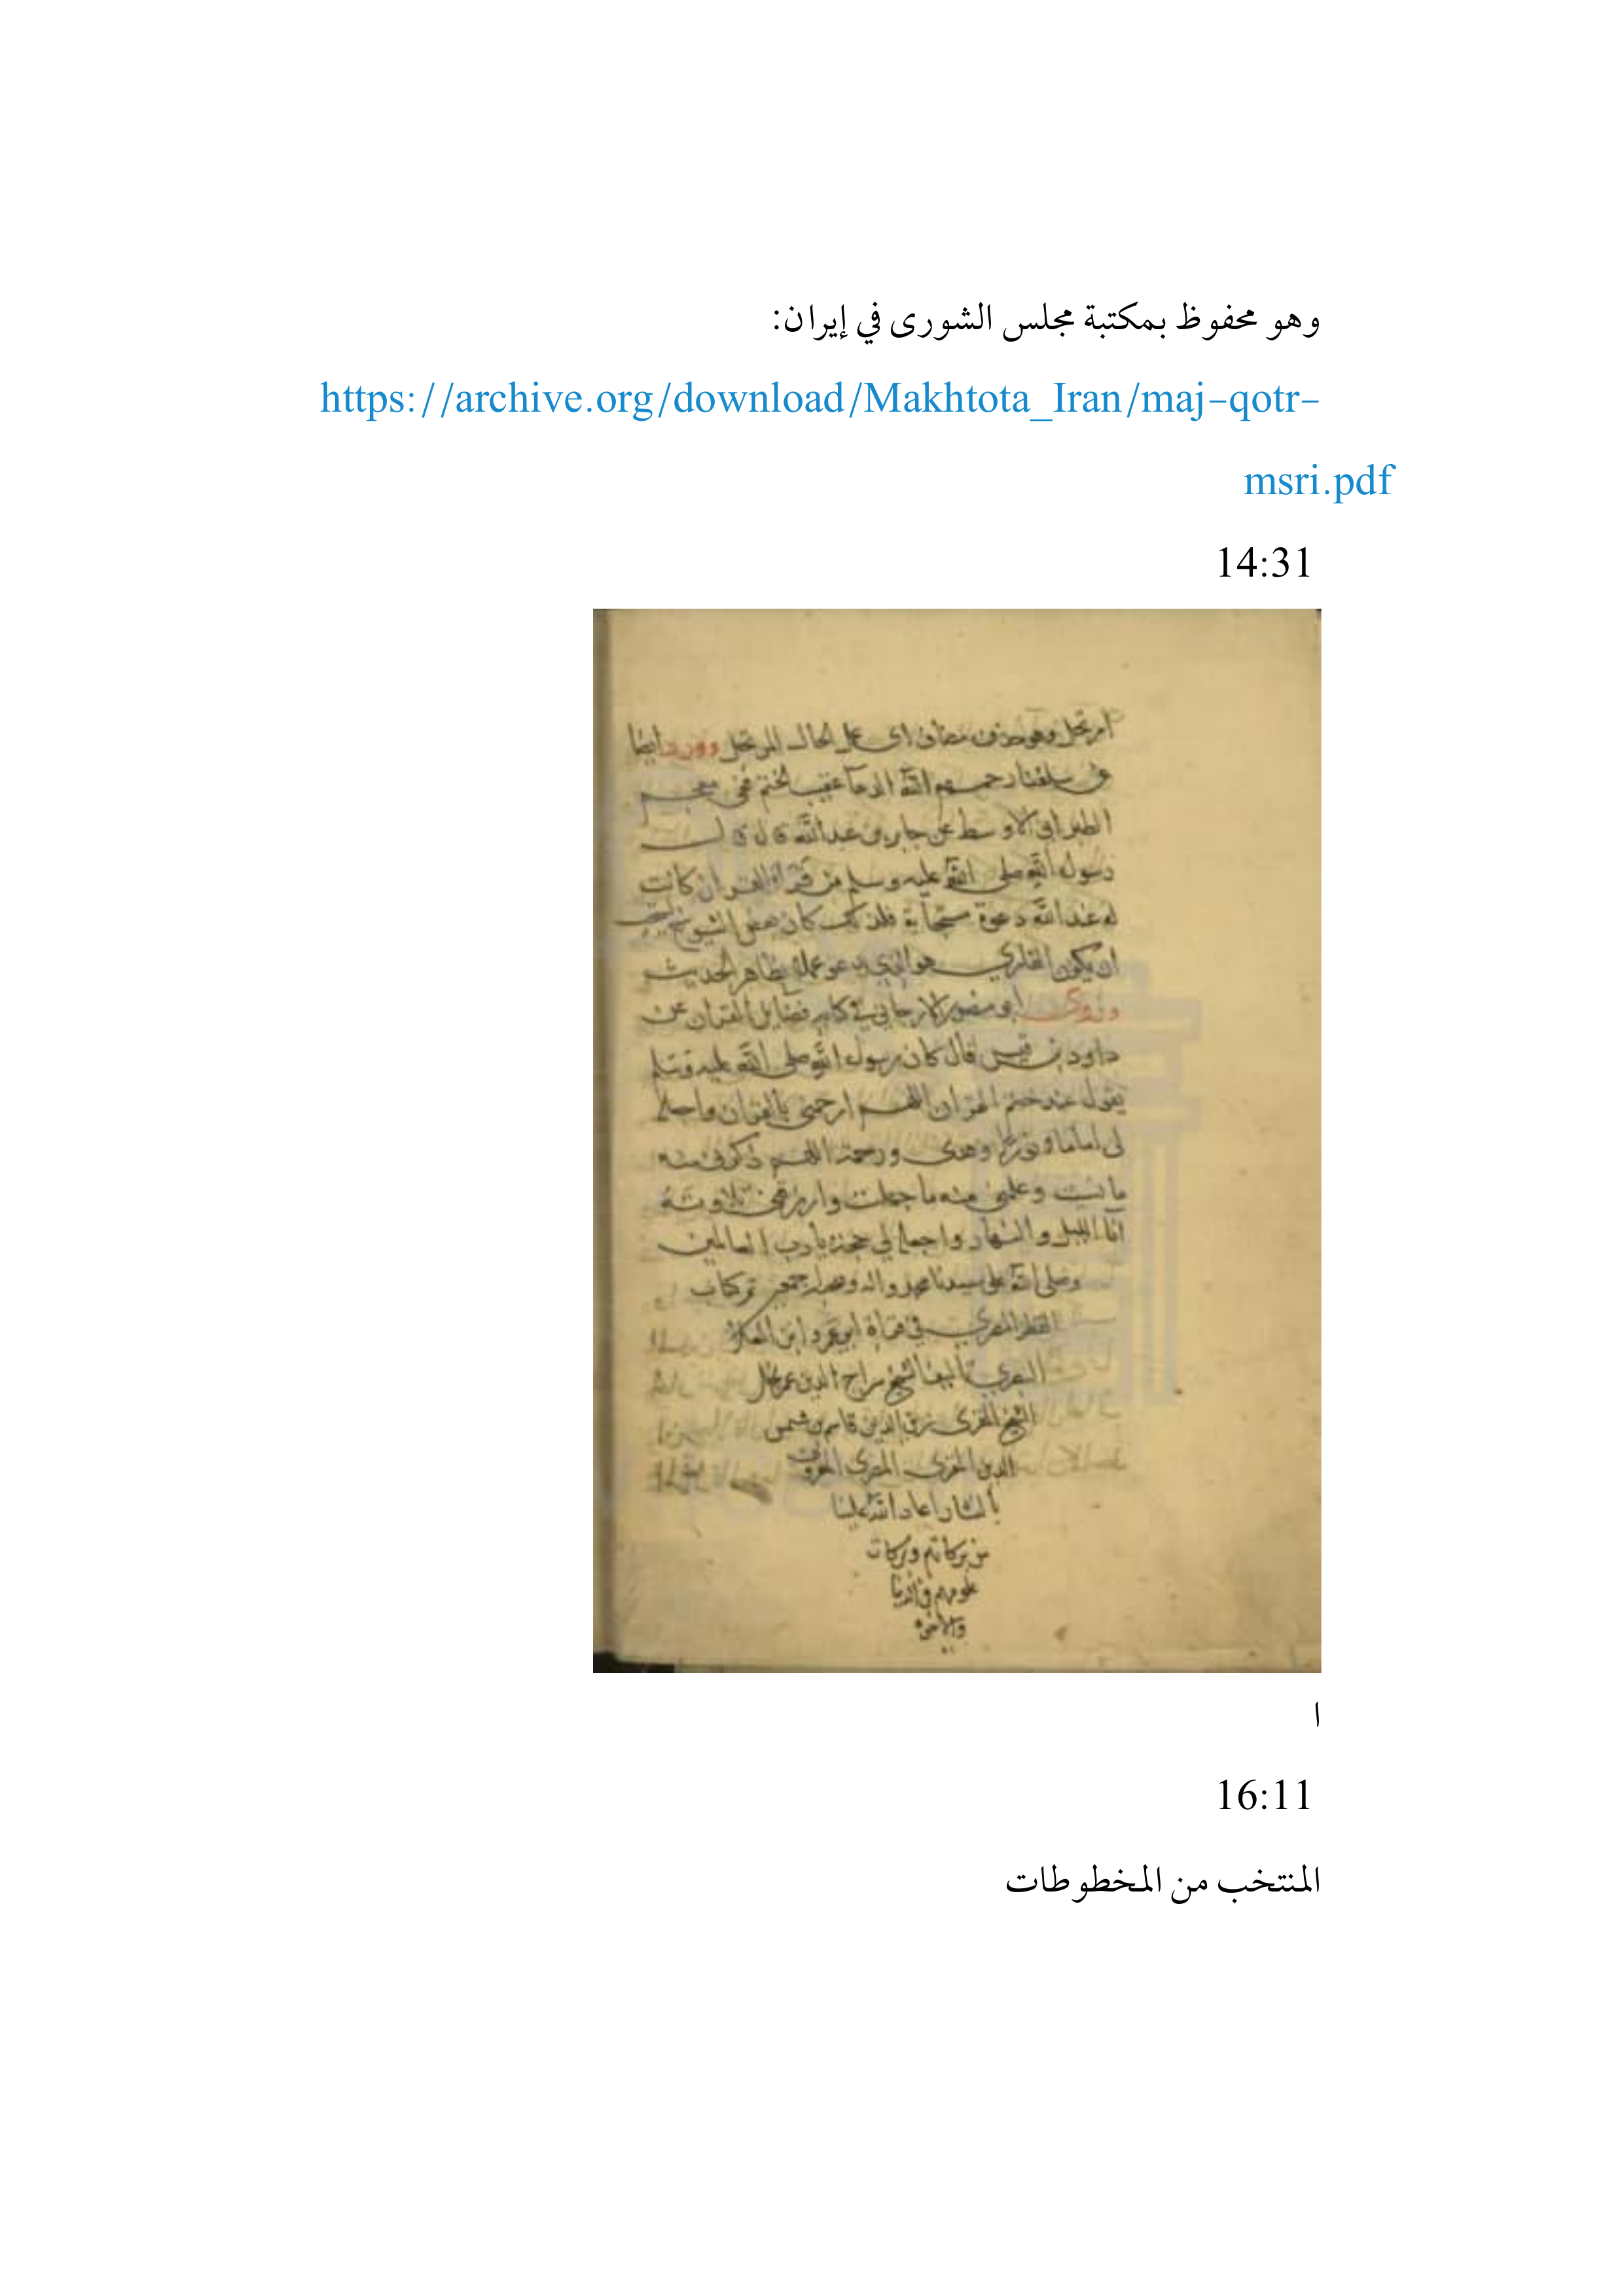 وهو محفوظ بمكتبة مجلس الشورى في إيران:
https://archive.org/download/Makhtota_Iran/maj-qotr-
msri.pdf
14:31
ارتحل وهو حذف مضاف اي عمل الحال المرتحل وورد ايضا
عن سلفنا رحمهم الله الدعا عقيب الختم ففي معجم
الطبراني الاوسط عن جابر بن عبد الله قال قال
رسول الله صلى الله عليه وسلم من قرا القران كانت
له عند الله دعوة مستجابة فلذلك كان بعض الشيوخ
ان يكون القاري هو الذي يدعو عملا بظاهر الحديث
وروى ابو منصور الارجاني في كتابه فضايل القران عن
داود بن قيس قال كان رسول الله صلى الله عليه وسلم
يقول عند ختم القران اللهم ارحمني بالقران واجعله
لي اماما ونورا وهدى ورحمة اللهم ذكرني منه
ما نسيت وعلمني منه ما جهلت وارزقني تلاوته
انا الليل والنهار واجعله لي حجة يا رب العالمين
وصلى الله على سيدنا محمد واله وصحبه تم كتاب
القطر المصري في قراة ابي عمرو ابن العلا
البصري تاليف الشيخ سراج الدين عمر نجل
الشيخ المقرئ زين الدين قاسم بن شمس
الدين المقرئ المصري المعروف
بالنشار اعاد الله علينا
من بركاتهم وبركات
علومهم في الدنيا
والاخرة
ا
16:11
المنتخب من المخطوطات